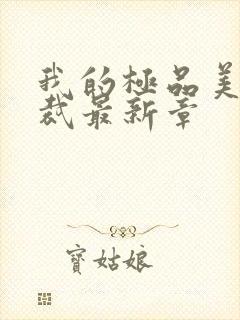 我的極品美
裁最新章
寶姑娘